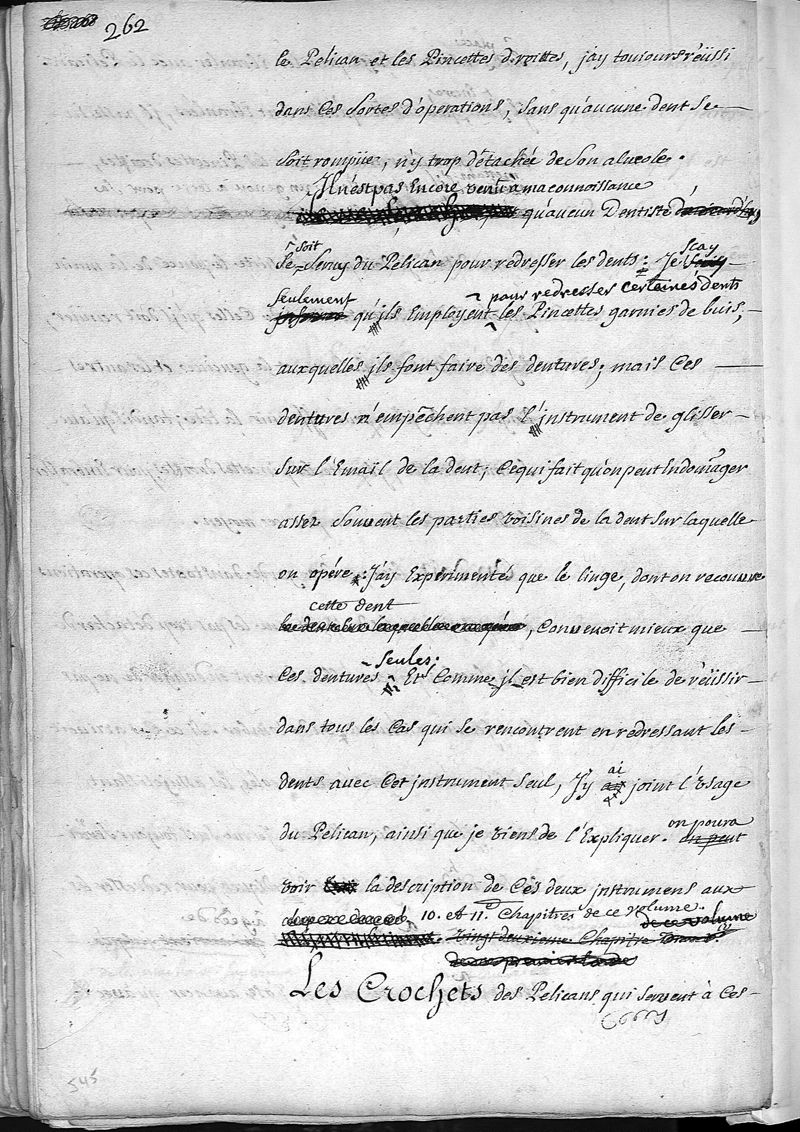 262
le Pelican et les Pincettes droittes, j'ay toujours réüssi
dans ces sortes d'operations, sans qu'aucune dent se
soit rompüe, n'y trop détachée de son alueole.
Il n'est pas Encore venu a ma connoissance
qu'aucun Dentiste
se soit seruy du Pelican pour redresser les dents: Je scay
seulement qu'ils Employent pour redresser certaines dents les Pincettes garnies de buis,
auxquelles jls font faire des dentures; mais ces
dentures n'empêchent pas l'jnstrument de glisser
sur l'Email de la dent; ce qui fait qu'on peut Endomager
assez souvent les parties voisines de la dent sur laquelle
on opére: J'ay Experimenté que le linge, dont on recouvre
cette dent
, convenoit mieux que
ces dentures seules; Et Comme jl est bien difficile de réüssir
dans tous les cas qui se rencontrent en redressant les
dents avec cet jnstrument seul, J'y ai joint l'Vsage
du Pelican, ainsi que je viens de l'Expliquer. on poura
voir la description de ces deux jnstrumens aux
10. et 11. Chapitres de ce volume.
de ce volume
vingt deuxieme Chapitre
Les Crochets des Pelicans qui servent à ces
545